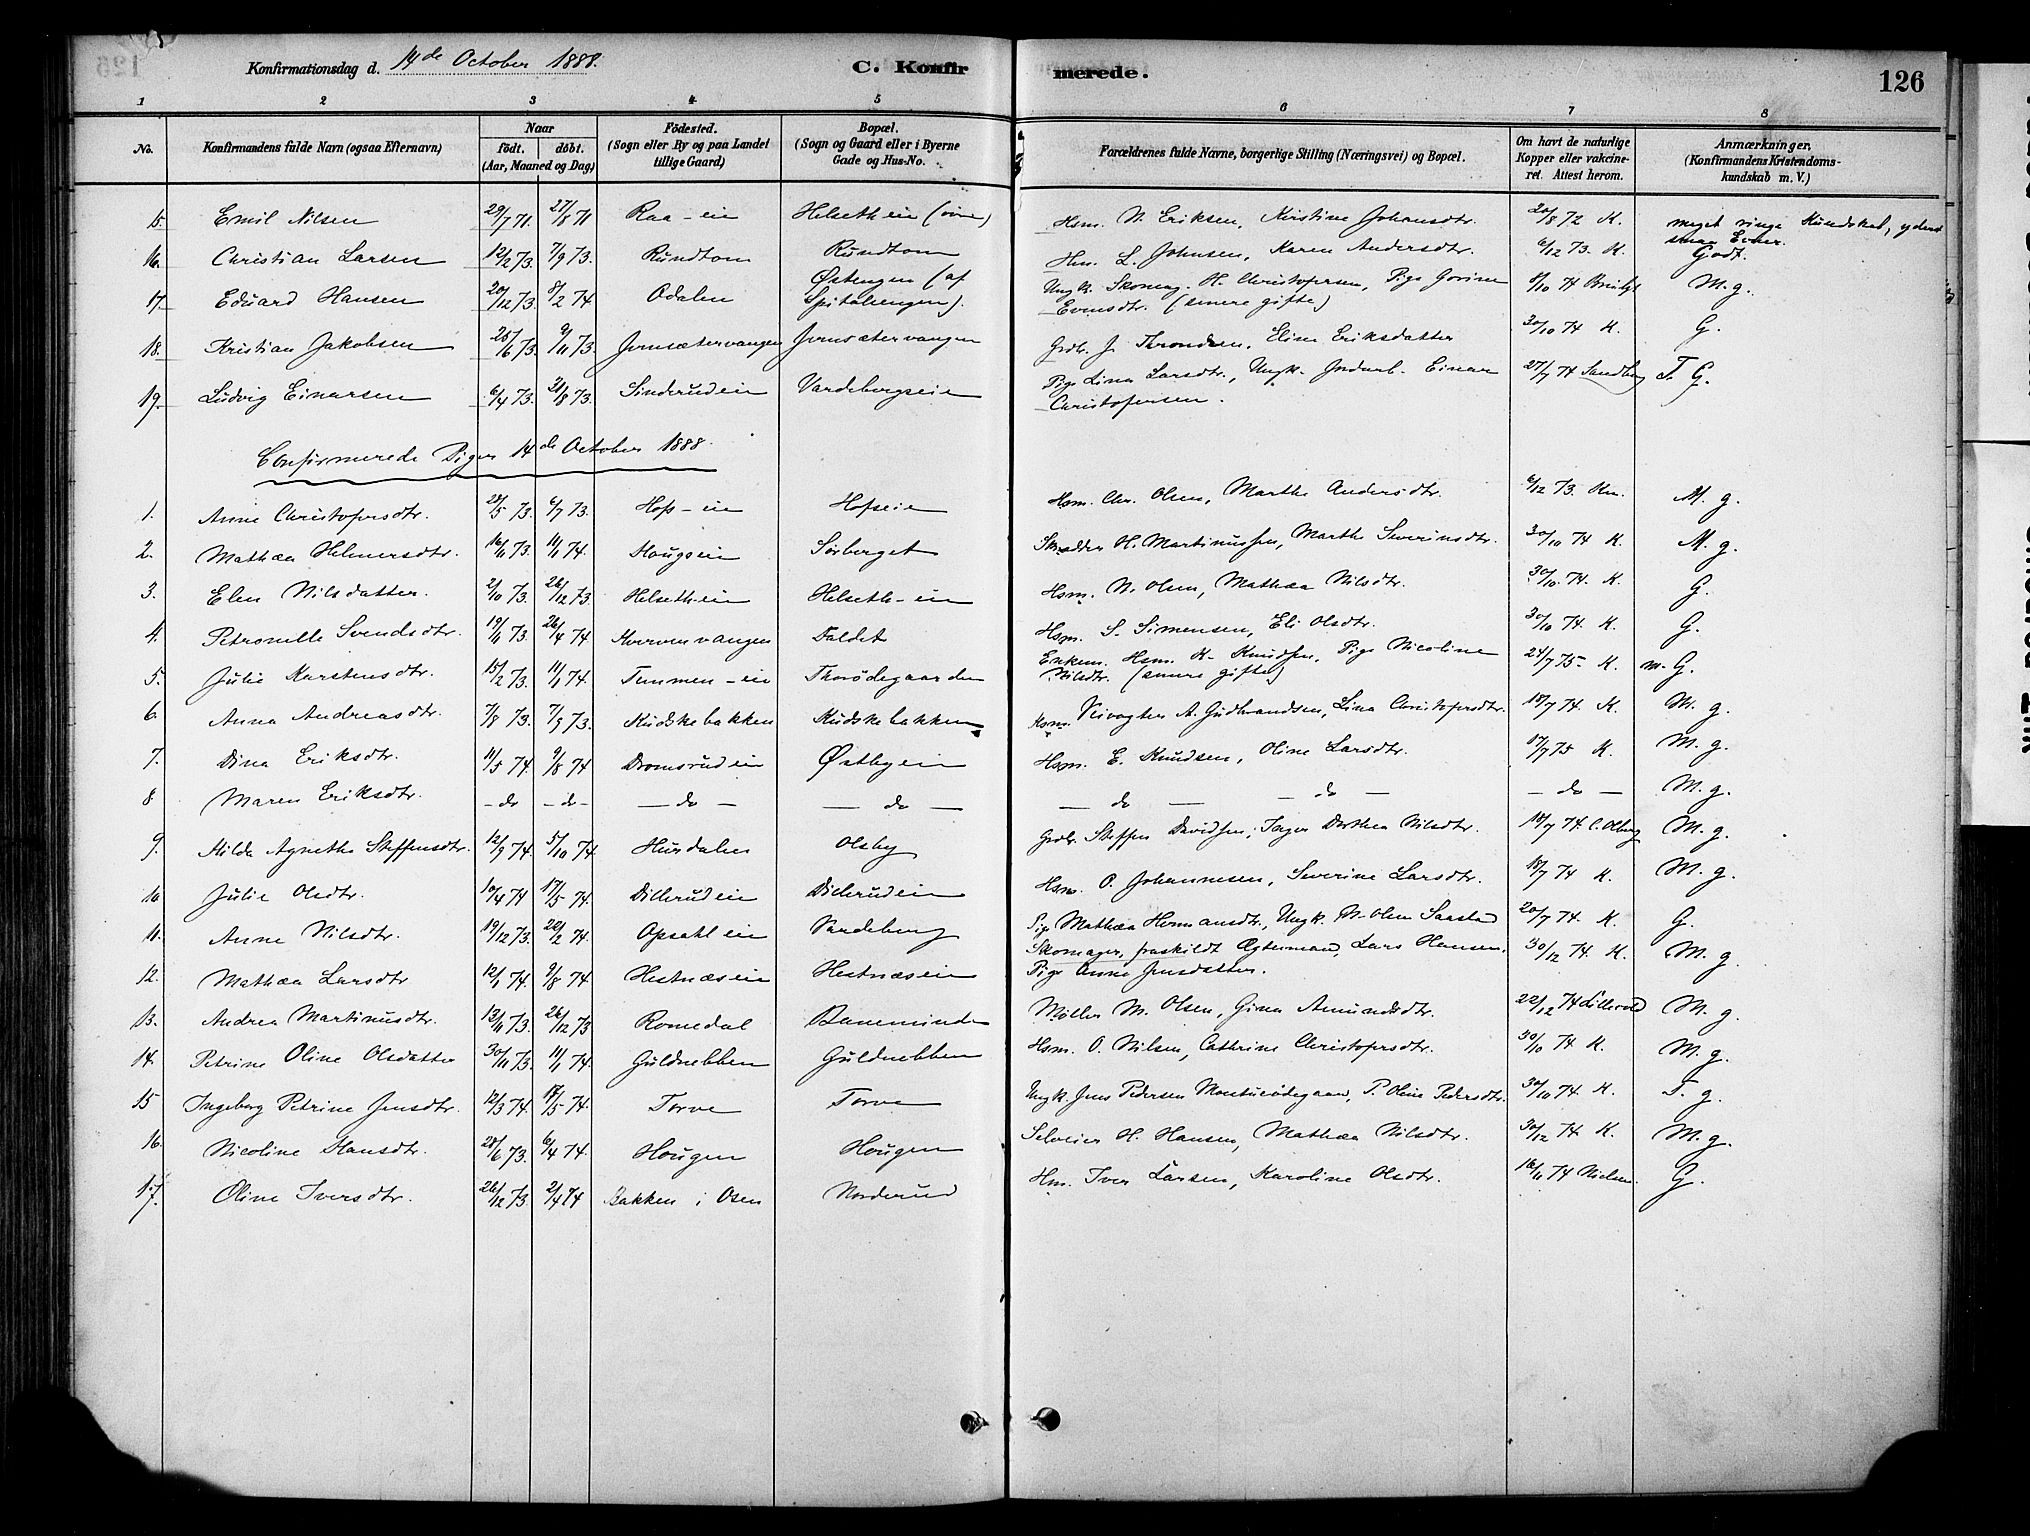 Konfirmationsdag d. 14de October 1888. C. Konfirmerede. 126
1 2 3 4 5 6 7 8
No. Konfirmandens fulde Navn (ogsaa Efternavn) Naar født. døbt. (Aar, Maaned og Dag) Födested. (Sogn eller By og paa Landet tillige Gaard) Bopæl. (Sogn og Gaard eller i Byerne Gade og Hus-No. Forældrenes fulde Navne, borgerlige Stilling (Næringsvei) og Bopæl. Om havt de naturlige Kopper eller vakcineret. Attest herom. Anmærkninger, (Konfirmandens Kristendomskundskab m. V.)
15. Emil Nilsen 29/7 71. 27/8 71 Raa-eie Helseth eie (øvre) Hsm. N. Eriksen, Kristine Johansdtr. 20/8 72 K. meget ringe Kundskab, yderst smaa Evner.
16. Christian Larsen 12/2 73. 7/9 73. Rundtom Rundtom Hm. L. Johnsen, Karen Andersdtr. 6/12 73. K. Godt.
17. Eduard Hansen 20/12 73. 8/2 74 Odalen Østengen (af Spitalengen). Ungk. Skomag. H. Christofersen, Pige Gorine Evensdtr. (senere gifte) 8/10 74 M. g.
18. Kristian Jakobsen 25/6 73. 9/11 73. Jonsætervangen Jonsætervangen Grdbr. J. Throndsen, Eline Eriksdatter 30/10 74 K. G.
19. Ludvig Einarsen 6/4 73. 31/8 73. Sinderudeie Vardebergseie Pige Lina Larsdtr., Ungk. Inderl. Einar Christofersen. 27/7 74 Sandberg T. G.
Confirmerede Piger 14de October 1888.
1. Anne Christofersdtr. 28/5 73. 6/7 73. Hofs-eie Hofseie Hsm. Chr. Olsen, Marthe Andersdtr. 6/12 73. Km. M. g.
2. Mathea Helmersdtr. 16/11 73. 11/1 74. Haugseie Sørberget Skrædder H. Martinussen, Marthe Severinsdtr. 30/10 74 K. M. g.
3. Elen Nilsdatter. 2/10 73. 26/12 73. Helseth-eie Helseth-eie Hsm. N. Olsen, Mathea Nilsdtr. 30/10. 74. K. G.
4. Petronelle Svendsdtr. 19/11 73. 26/4 74 Kvernvangen Faldet Hsm. S. Simensen, Eli Olsdtr. 30/10 74. K. G.
5. Julie Karstensdtr. 15/2 73. 11/1 74. Temmen-eie Thorödegaarden Enkem. Hsm. K. Knudsen, Pige Nicoline Nilsdtr. (senere gifte) 24/7 75- K. m. G.
6. Anna Andreasdtr. 7/8 73. 7/9 73. Kudskebakken Kudskebakken Hsm. Veivogter A. Gudbrandsen, Lina Christofersdtr. 18/7 74. K. M. g.
7. Dina Eriksdtr. 11/5 74 9/8 74 Dromsrudeie Østbyeie Hsm. E. Knudsen, Oline Larsdtr. 17/7 75 K. M. g.
8. Maren Eriksdtr. - do - do - - do - - do - - do - - do - - do - M. g.
9. Hilda Agnethe Steffensdtr. 12/9 74. 5/10 74 Hurdalen Olsby Grdbr. Steffen Davidsen, Inger Dorthea Nilsdtr. 18/7 74. C. Olberg M. g.
10 Julie Olsdtr. 10/4 74 17/5 74. Dillerudeie Dillerudeie Hsm. O. Johannesen, Severine Larsdtr. 18/7 74 K. M. g.
11. Anne Nilsdtr. 19/12 73. 22/2 74. Opsahl eie Vardeberg Pige Mathea Hermansdtr., Ungk. N. Olsen Saastad 20/7 74. K. G.
12. Mathea Larsdtr 12/1 74. 9/8 74. Hestnæseie Hestnæseie Skomager, fraskildt Ægtemand, Lars Hansen, Pige Anne Jensdatter. 30/12 74. K. M. g.
13. Andrea Martinusdtr. 13/11 73. 26/12 73 Romedal Banminde Møller M. Olsen, Gina Amundsdtr. 22/12 74 Lillevold M. g.
14. Petrine Oline Olsdatter 30/11 73. 11/1 74. Guldnebben Guldnebben Hsm. O. Nilsen, Cathrine Christofersdtr. 30/10 74 K. M. g.
15 Ingeborg Petrine Jensdtr. 12/3 74. 17/5 74. Torve Torve Ungk. Jens Pedersen, P. Oline Pedersdtr. 30/10 74. K. T. g.
16. Nicoline Hansdtr. 28/6 73. 6/4 74. Hougen Hougen Selveier H. Hansen, Mathea Nilsdtr. 30/12 74. K. M. g.
17. Oline Iversdtr. 26/12 73. 2/4 74 Bakken i Osen Norderud Hm. Iver Larsen, Karoline Olsdtr. 16/11 74 Nielsen. G.